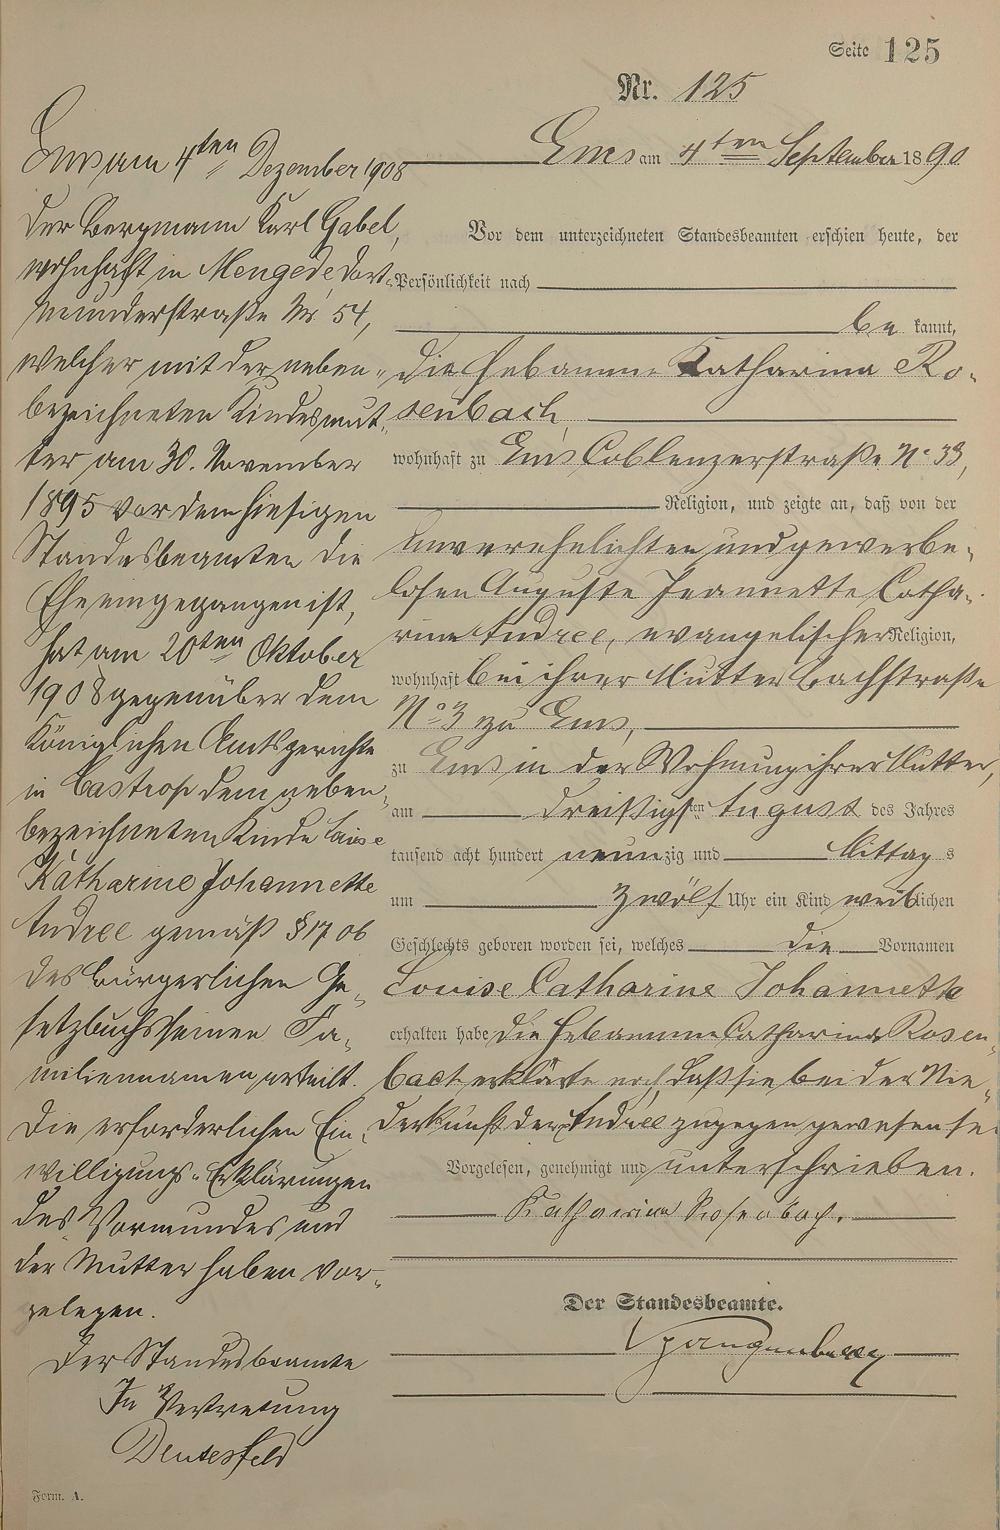 Seite 125
Nr. 125
Ems am 4ten September 1890
Vor dem unterzeichneten Standesbeamten erschien heute, der
Persönlichkeit nach
be kannt,
die Hebamme Katharina Ro-
senbach,
wohnhaft zu Ems Coblenzerstraße No 33,
Religion, und zeigte an, daß von der
unverehelichten und gewerbe-
losen Auguste Jeannette Catha-
rine Andree, evangelischer Religion,
wohnhaft bei ihrer Mutter Bachstraße
No 3 zu Ems,
zu Ems in der Wohnung ihrer Mutter,
am dreißigsten August des Jahres
tausend acht hundert neunzig und Mittags
um zwölf Uhr ein Kind weiblichen
Geschlechts geboren worden sei, welches die Vornamen
Louise Catharine Johannette
erhalten habe die Hebamme Catharina Rosen-
bach erklärte noch, daß sie bei der Nie-
derkunft der Andree zugegen gewesen sei
Vorgelesen, genehmigt und unterschrieben.
Katharina Rosenbach.
Der Standesbeamte.
Spangenberg
Ems am 4ten Dezember 1908
Der Bergmann Karl Gabel,
wohnhaft in Mengede Dort-
munderstraße Nr. 54,
welcher mit der neben-
bezeichneten Kindesmut-
ter am 30. November
1895 vor dem hiesigen
Standesbeamten die
Ehe eingegangen ist,
hat am 20ten Oktober
1908 gegenüber dem
Königlichen Amtsgerichte
in Castrop dem neben-
bezeichneten Kinde Luise
Katharine Johannette
Andree gemäß § 1706
des bürgerlichen Ge-
setzbuchs seinen Fa-
miliennamen erteilt.
Die erforderlichen Ein-
willigungs-Erklärungen
des Vormundes und
der Mutter haben vor-
gelegen.
Der Standesbeamte
In Vertretung
Form. A.